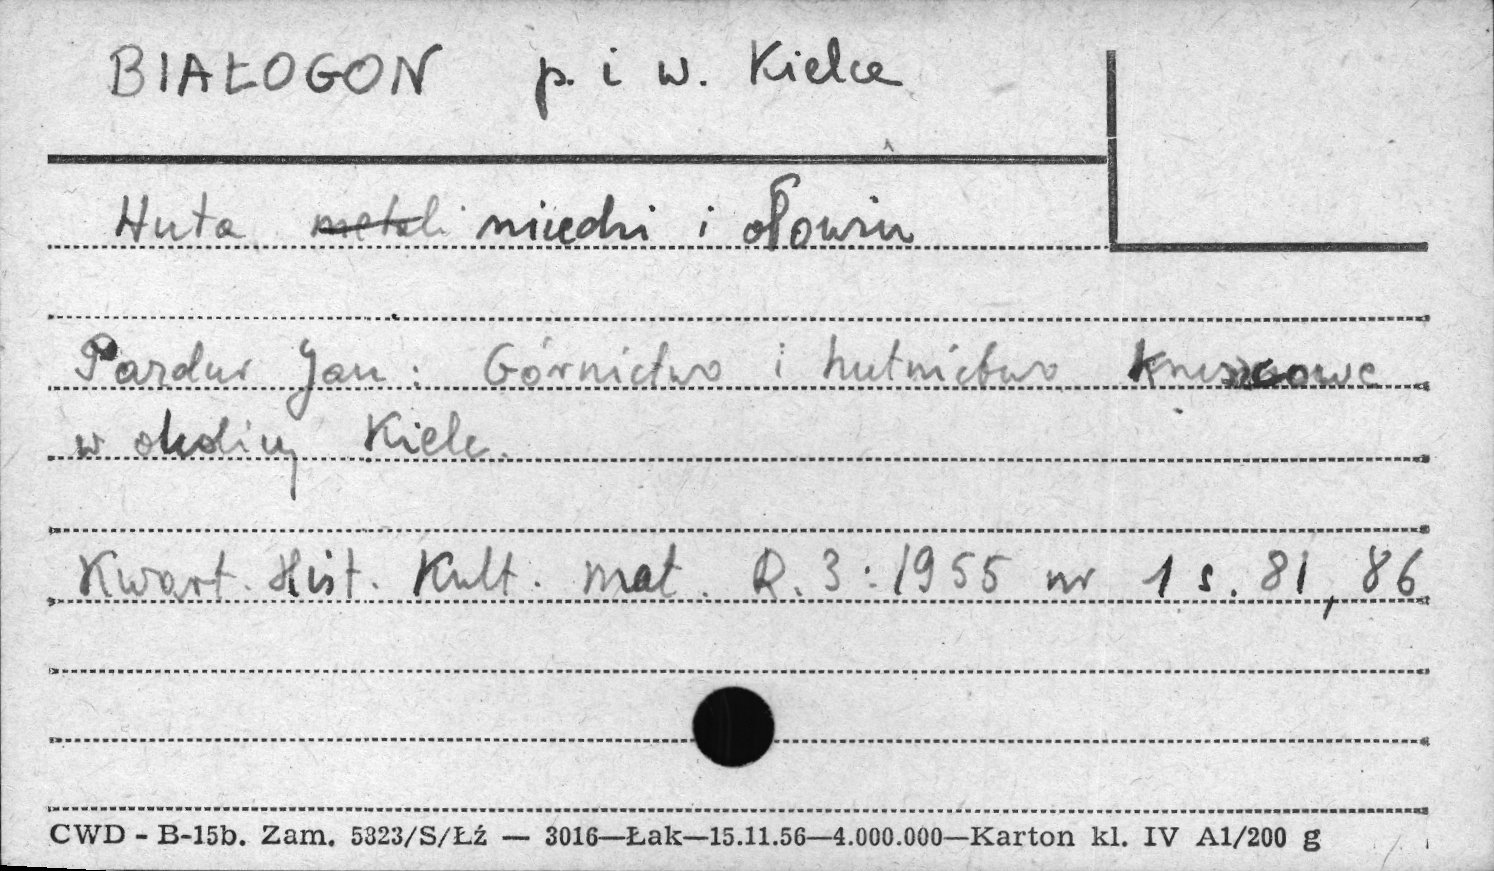 BIAŁOGON p. i w. Kielce
Huta metali miedzi i ołowiu
Pazdur Jan: Górnictwo i hutnictwo kruszcowe
w okolicy Kielc.
Kwart. Hist. Kult. Mat. R. 3: 1955 nr 1 s. 81, 86
CWD - B-15b. Zam. 5323/S/Łź — 3016—Łak—15.11.56—4.000.000—Karton kl. IV A1/200 g